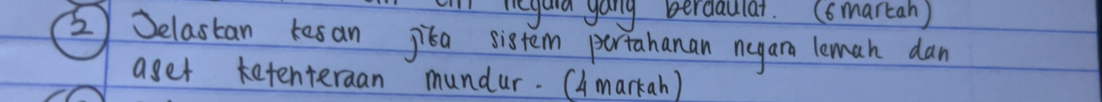 negara yang berdaulat. (6 markah)
2 Jelaskan kesan jika sistem pertahanan negara lemah dan
aset ketenteraan mundur. (4 markah)